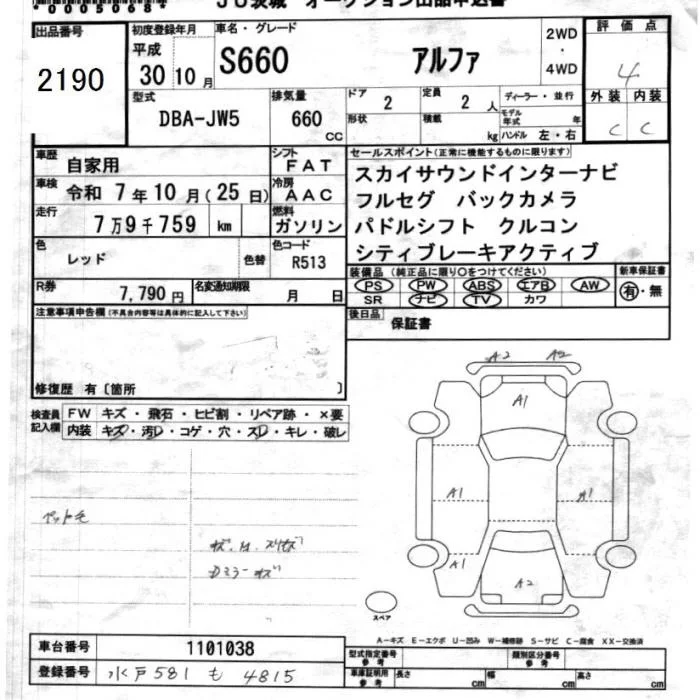 *00005068*
JU茨城 オークション出品申込書
出品番号 2190
初度登録年月 平成 30 10月
車名・グレード S660 アルファ
2WD ・ 4WD
評価点 4
外装 内装
C C
型式 DBA-JW5
排気量 660 CC
ドア 2
定員 2 人
ディーラー・並行
形状
積載 kg
モデル年式 年
ハンドル 左・右
車歴 自家用
シフト FAT
車検 令和 7年10月(25日)
冷房 AAC
走行 7万9千759 km
燃料 ガソリン
色 レッド 色替
色コード R513
R券 7,790円
名変通知期限 月 日
セールスポイント(正常に機能するものに限ります)
スカイサウンドインターナビ
フルセグ バックカメラ
パドルシフト クルコン
シティブレーキアクティブ
装備品 (純正品に限り○をつけてください)
新車保証書
PS PW ABS エアB AW
SR ナビ TV カワ
有・無
後日品 保証書
注意事項申告欄(不具合内容等は具体的に記入して下さい)
修復歴 有〔箇所 〕
検査員記入欄
FW キズ・飛石・ヒビ割・リペア跡・×要
内装 キズ・汚レ・コゲ・穴・スレ・キレ・破レ
ペット毛
Dミラーキズ
A2 A2
A1
A1 A1
A1
A2
スペア
A−キズ E−エクボ U−凹み W−補修跡 S−サビ C−腐食 XX−交換済
車台番号 1101038
登録番号 水戸 581 も 4815
型式指定番号 参考
類別区分番号 参考
車庫証明用 参考
長さ cm
幅 cm
高さ cm